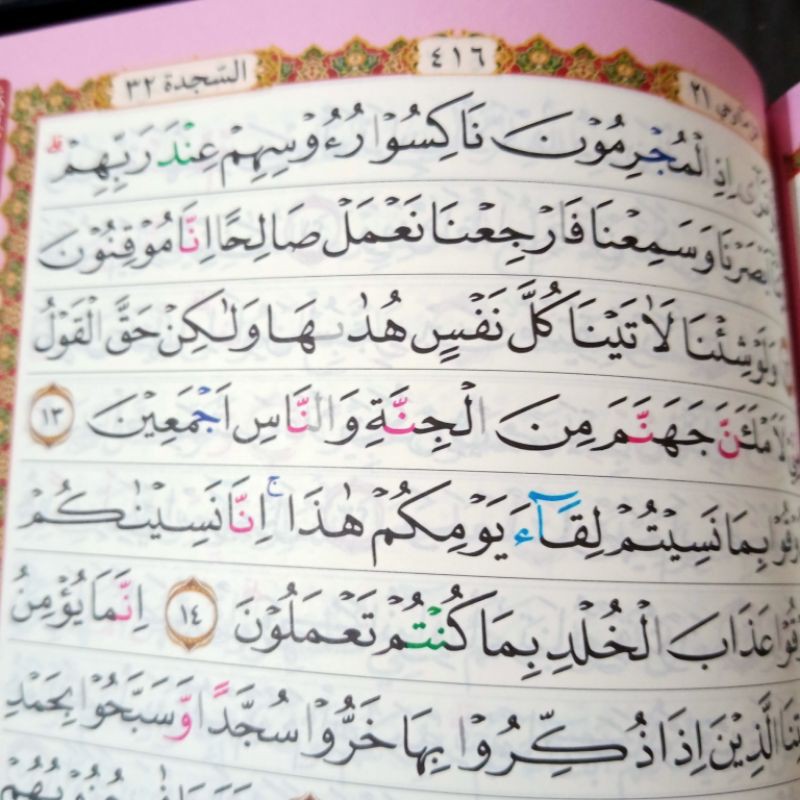 ٢١ ٤١٦ السّجدة ٣٢
اِذِ الْمُجْرِمُوْنَ نَاكِسُوْا رُءُوْسِهِمْ عِنْدَ رَبِّهِمْ
وَسَمِعْنَا فَارْجِعْنَا نَعْمَلْ صَالِحًا اِنَّا مُوْقِنُوْنَ
وَلَوْ شِئْنَا لَاٰتَيْنَا كُلَّ نَفْسٍ هُدٰىهَا وَلٰكِنْ حَقَّ الْقَوْلُ
لَاَمْلَـَٔنَّ جَهَنَّمَ مِنَ الْجِنَّةِ وَالنَّاسِ اَجْمَعِيْنَ ١٣
بِمَا نَسِيْتُمْ لِقَآءَ يَوْمِكُمْ هٰذَاۚ اِنَّا نَسِيْنٰكُمْ
عَذَابَ الْخُلْدِ بِمَا كُنْتُمْ تَعْمَلُوْنَ ١٤ اِنَّمَا يُؤْمِنُ
الَّذِيْنَ اِذَا ذُكِّرُوْا بِهَا خَرُّوْا سُجَّدًا وَّسَبَّحُوْا بِحَمْدِ